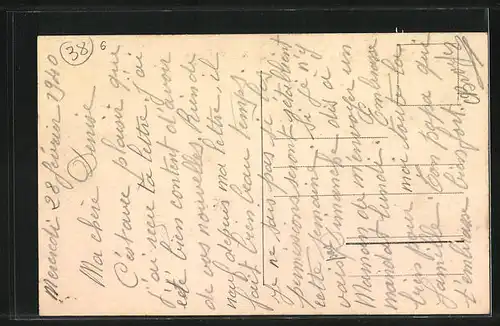 38
6
Mercredi 28 février 1940
Ma chère Denise
C'est avec plaisir que
j'ai reçu ta lettre, j'ai
été bien content d'avoir
de vos nouvelles. Rien de
neuf depuis ma lettre, il
fait bien beau temps.
Je ne sais pas si les
permissions seront rétablient
cette semaine. Si je n'y
vais Dimanche dis à
Maman de m'envoyer un
mandat Lundi. Embrasse
bien pour moi toute la
famille. Ton papa qui
t'embrasse bien fort.